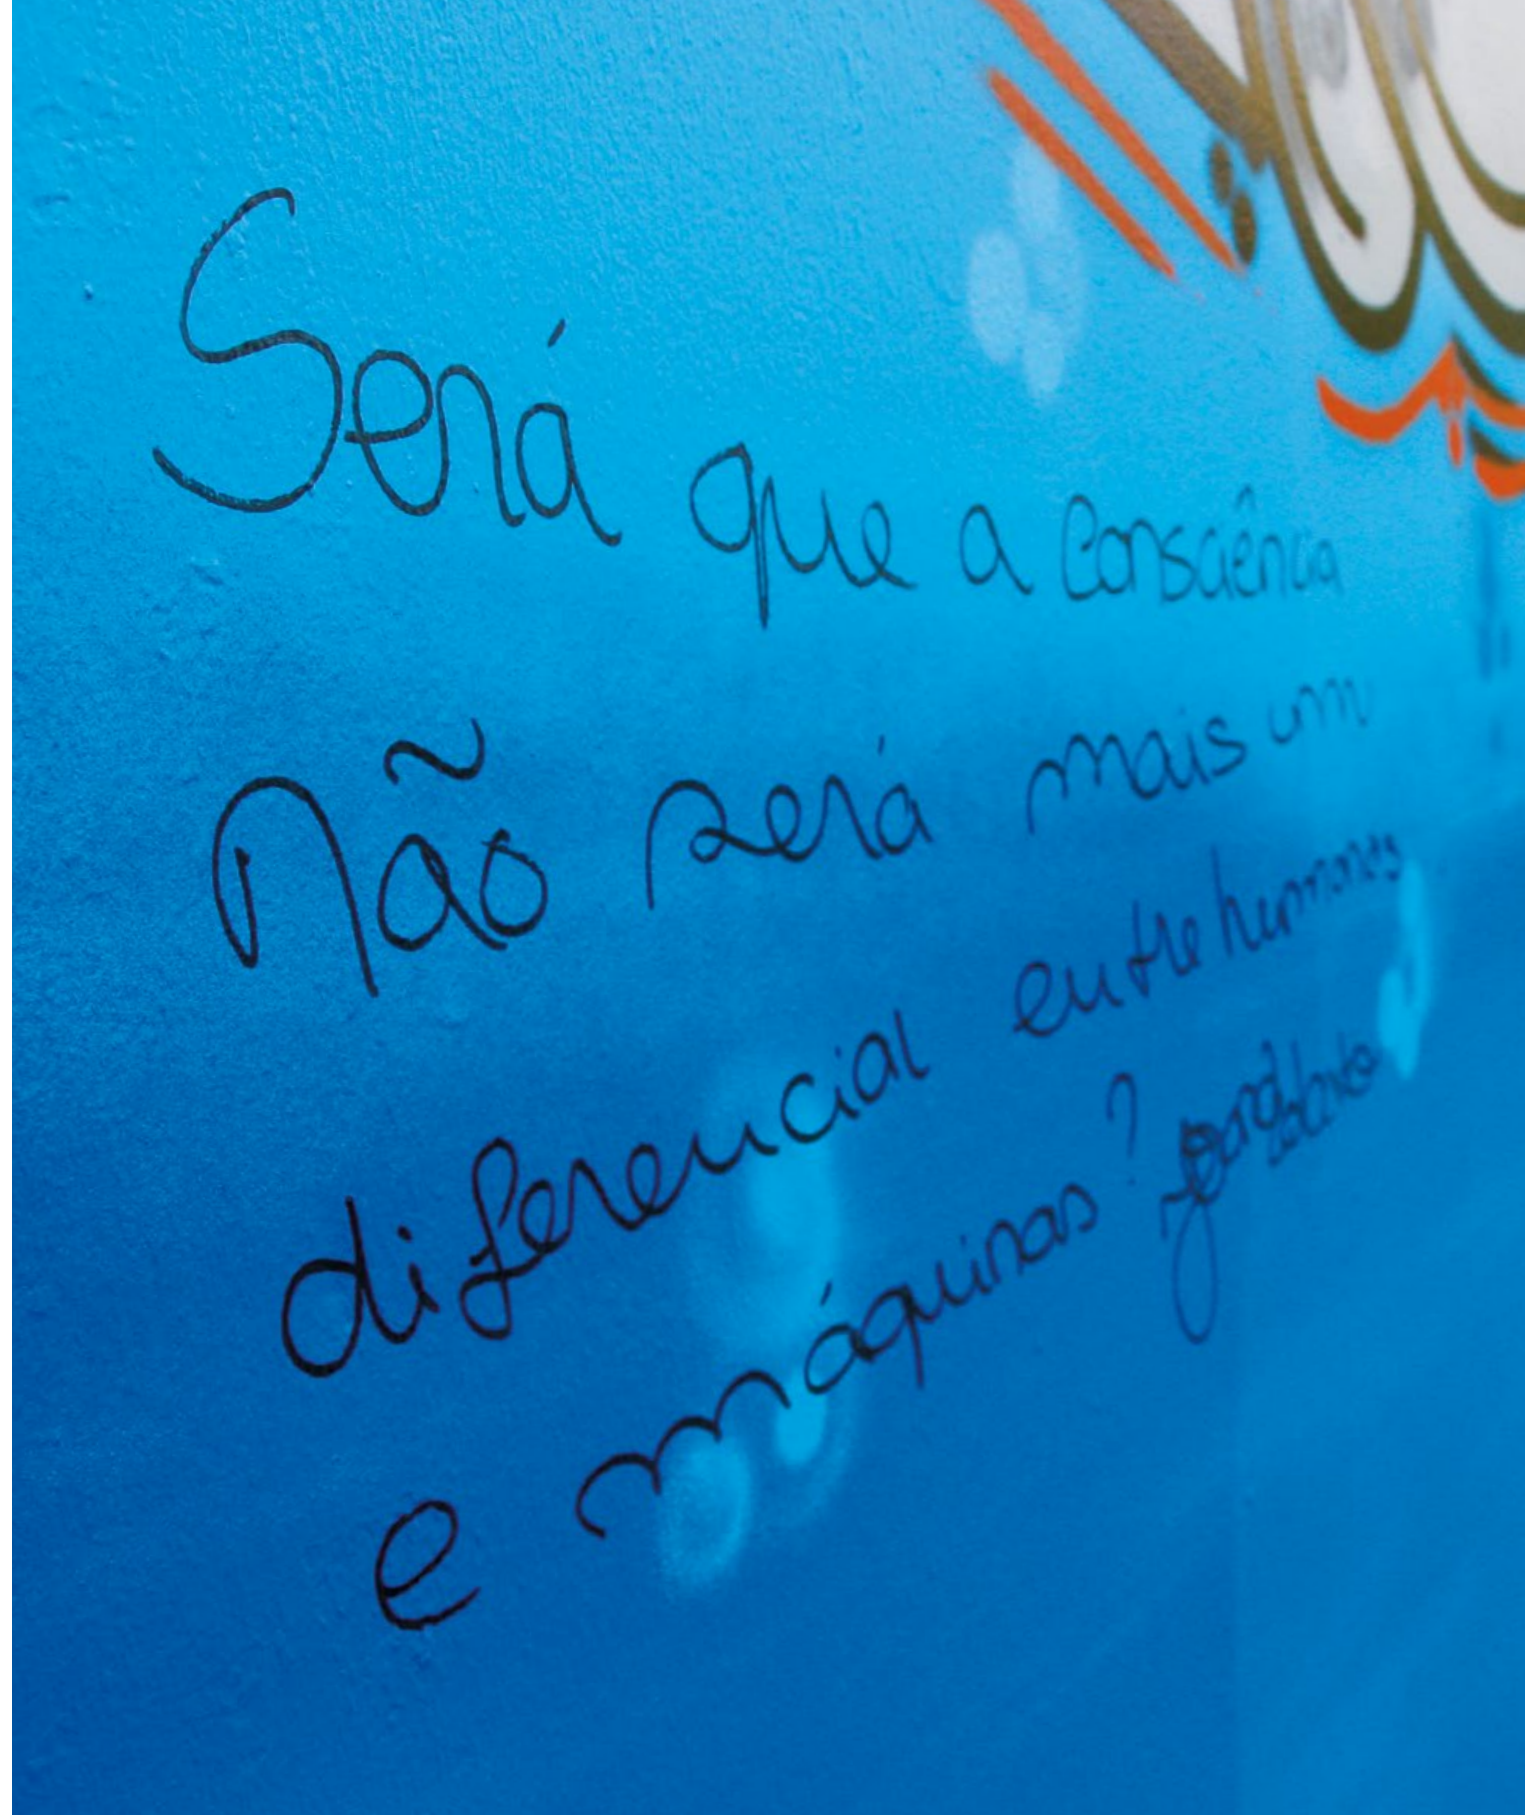 Será que a consciência
Não será mais um
diferencial entre humanos
e máquinas?